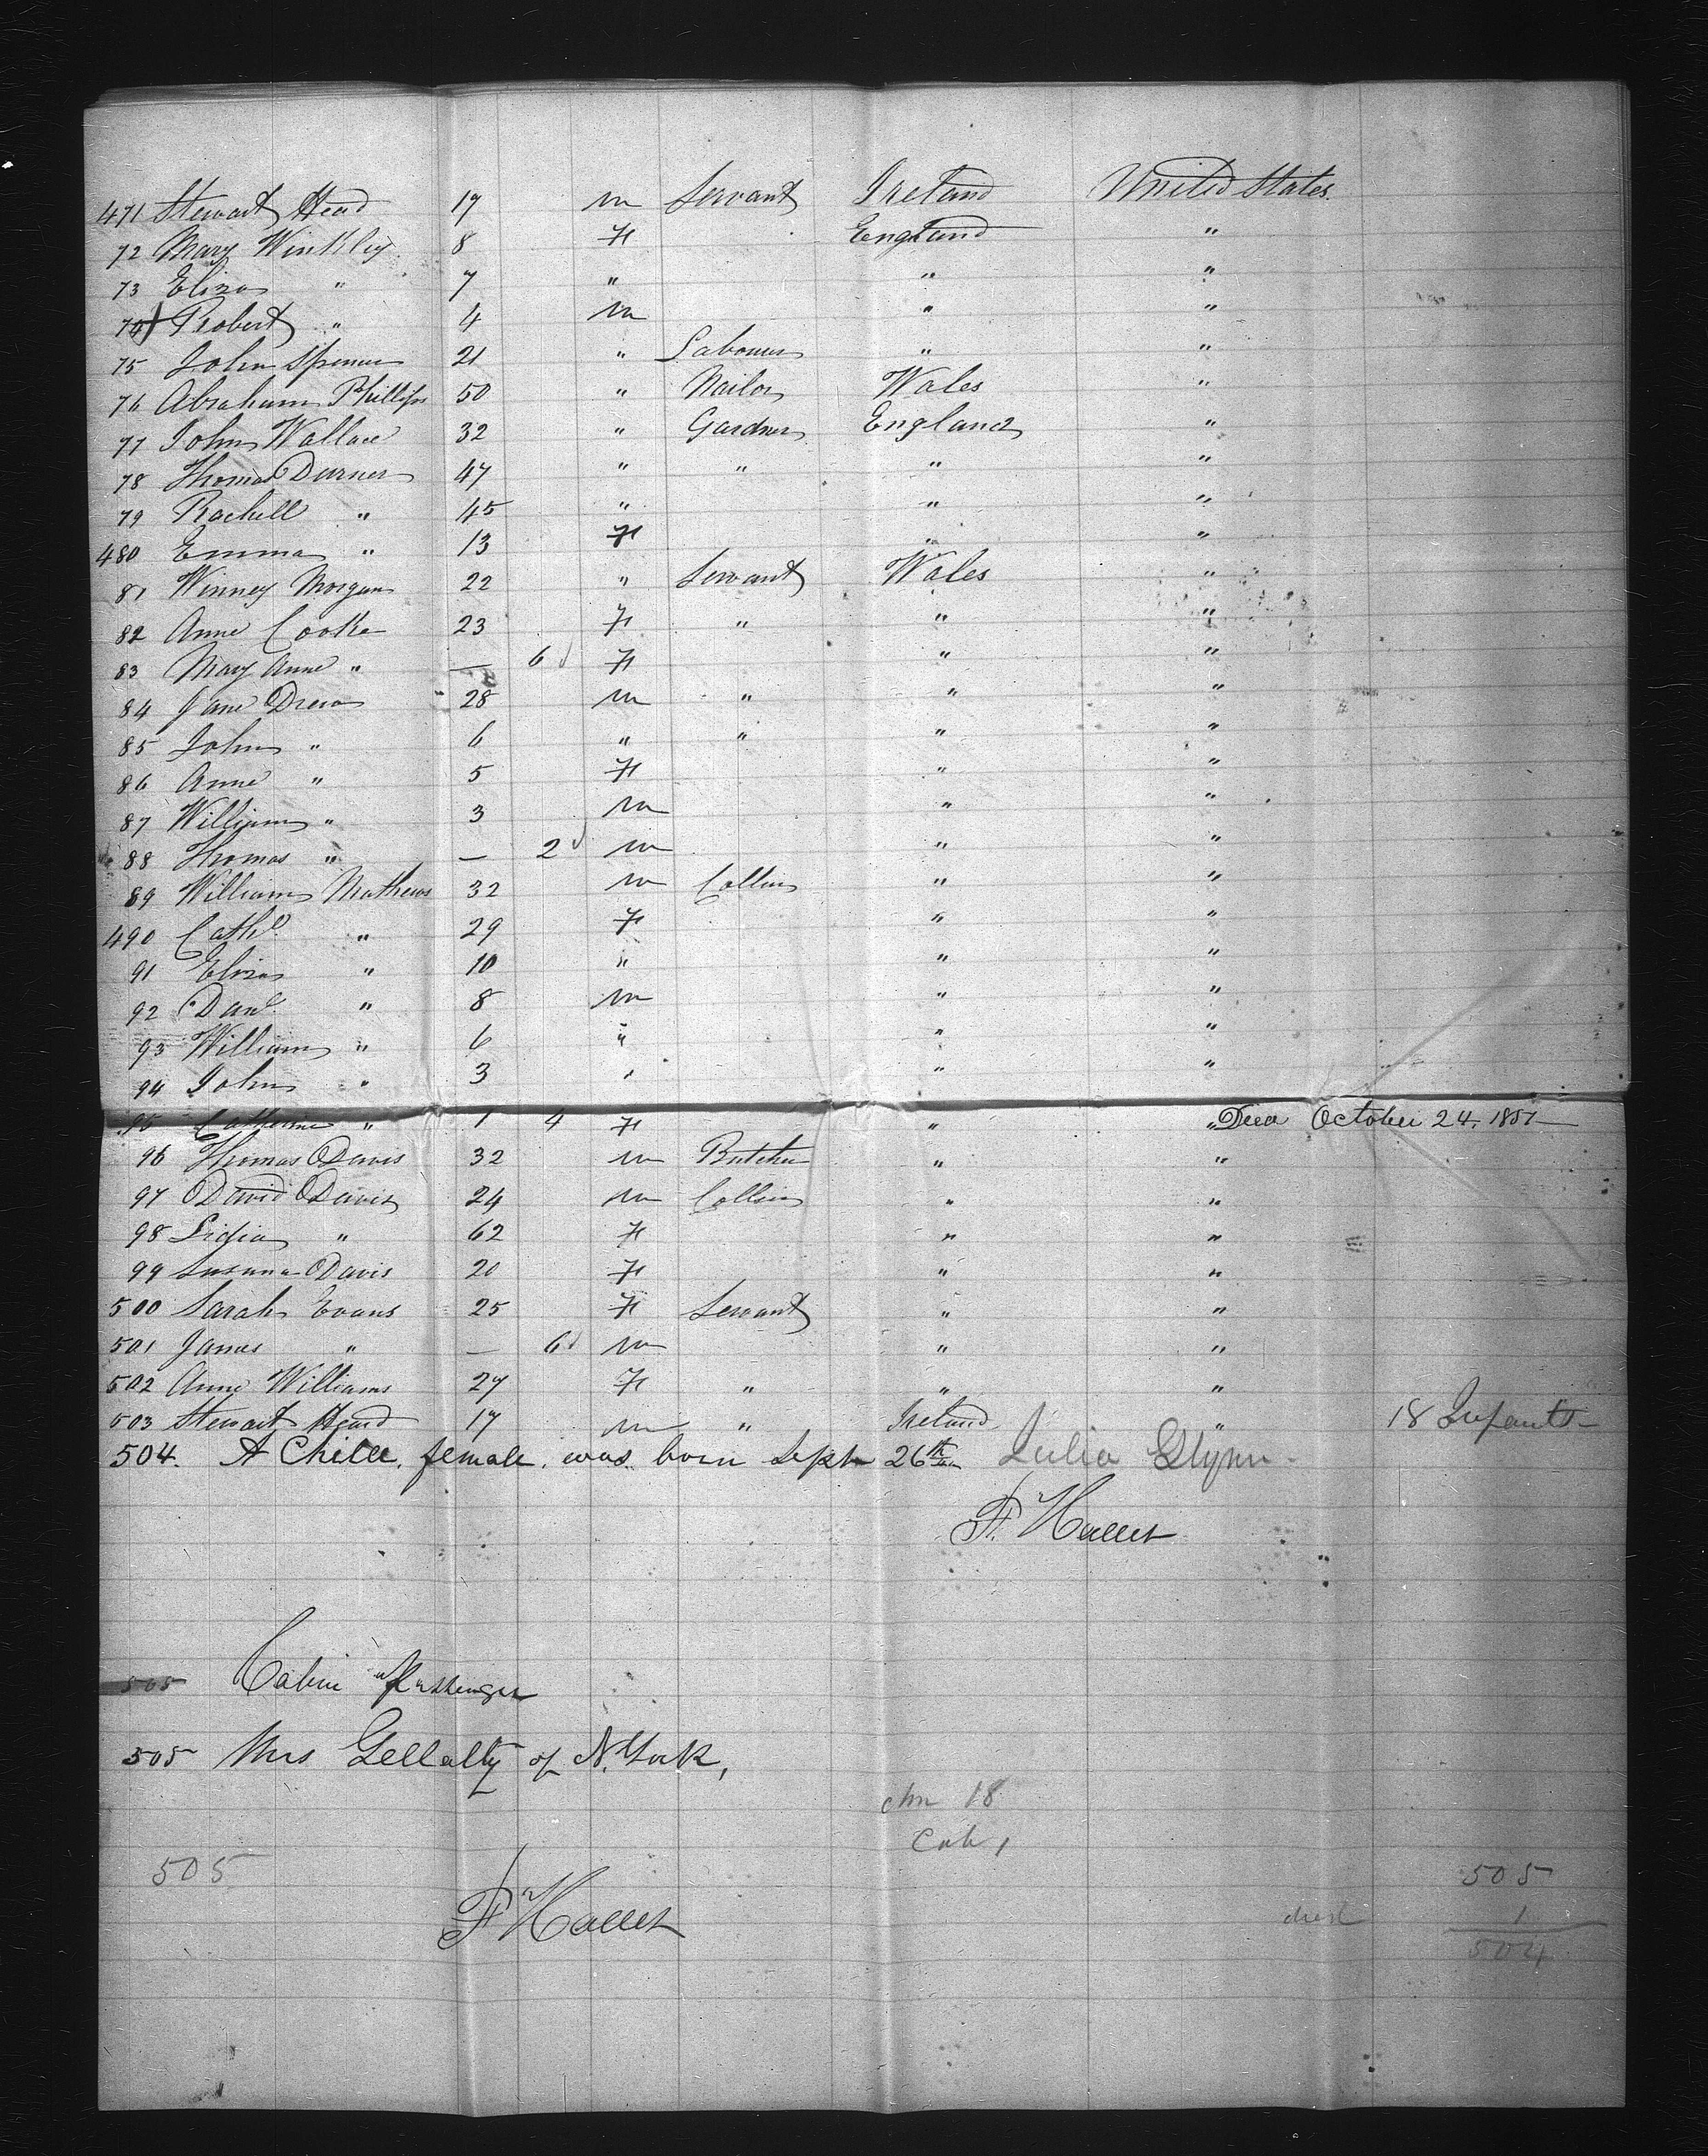 471 Stewart Head 17 m Servant Ireland United States.
72 Mary Winkley 8 F England "
73 Eliza " 7 " " "
74 Robert " 4 m " "
75 John Spencer 21 " Labourer " "
76 Abraham Phillips 50 " Nailor Wales "
77 John Wallace 32 " Gardner England "
78 Thomas Durner 47 " " " "
79 Rachell " 45 " " "
480 Emma " 13 F " "
81 Winney Morgan 22 " Servant Wales "
82 Anne Cooke 23 F " " "
83 Mary Anne " — 6 F " "
84 Jane Drew 28 m " " "
85 John " 6 " " " "
86 Anne " 5 F " "
87 William " 3 m " "
88 Thomas " — 2 m " "
89 William Mathews 32 m Collier " "
490 Cathe. " 29 F " "
91 Eliza " 10 " " "
92 Danl. " 8 m " "
93 William " 6 " " "
94 John " 3 " " "
95 Catherine " 1 4 F " " Died October 24, 1851
96 Thomas Davis 32 m Butcher " "
97 David Davis 24 m Collier " "
98 Lidia " 62 F " "
99 Susana Davis 20 F " "
500 Sarah Evans 25 F Servant " "
501 James " — 6 m " "
502 Anne Williams 27 F " " "
503 Stewart Head 17 m " Ireland " 18 Infants
504. A Child, female, was born Sept 26th Julia Glynn
F. Hallet
505 Cabin Passenger
505 Mrs Gellatty of N. York,
chn 18
Cab 1
505 505
F Hallet died 1
504